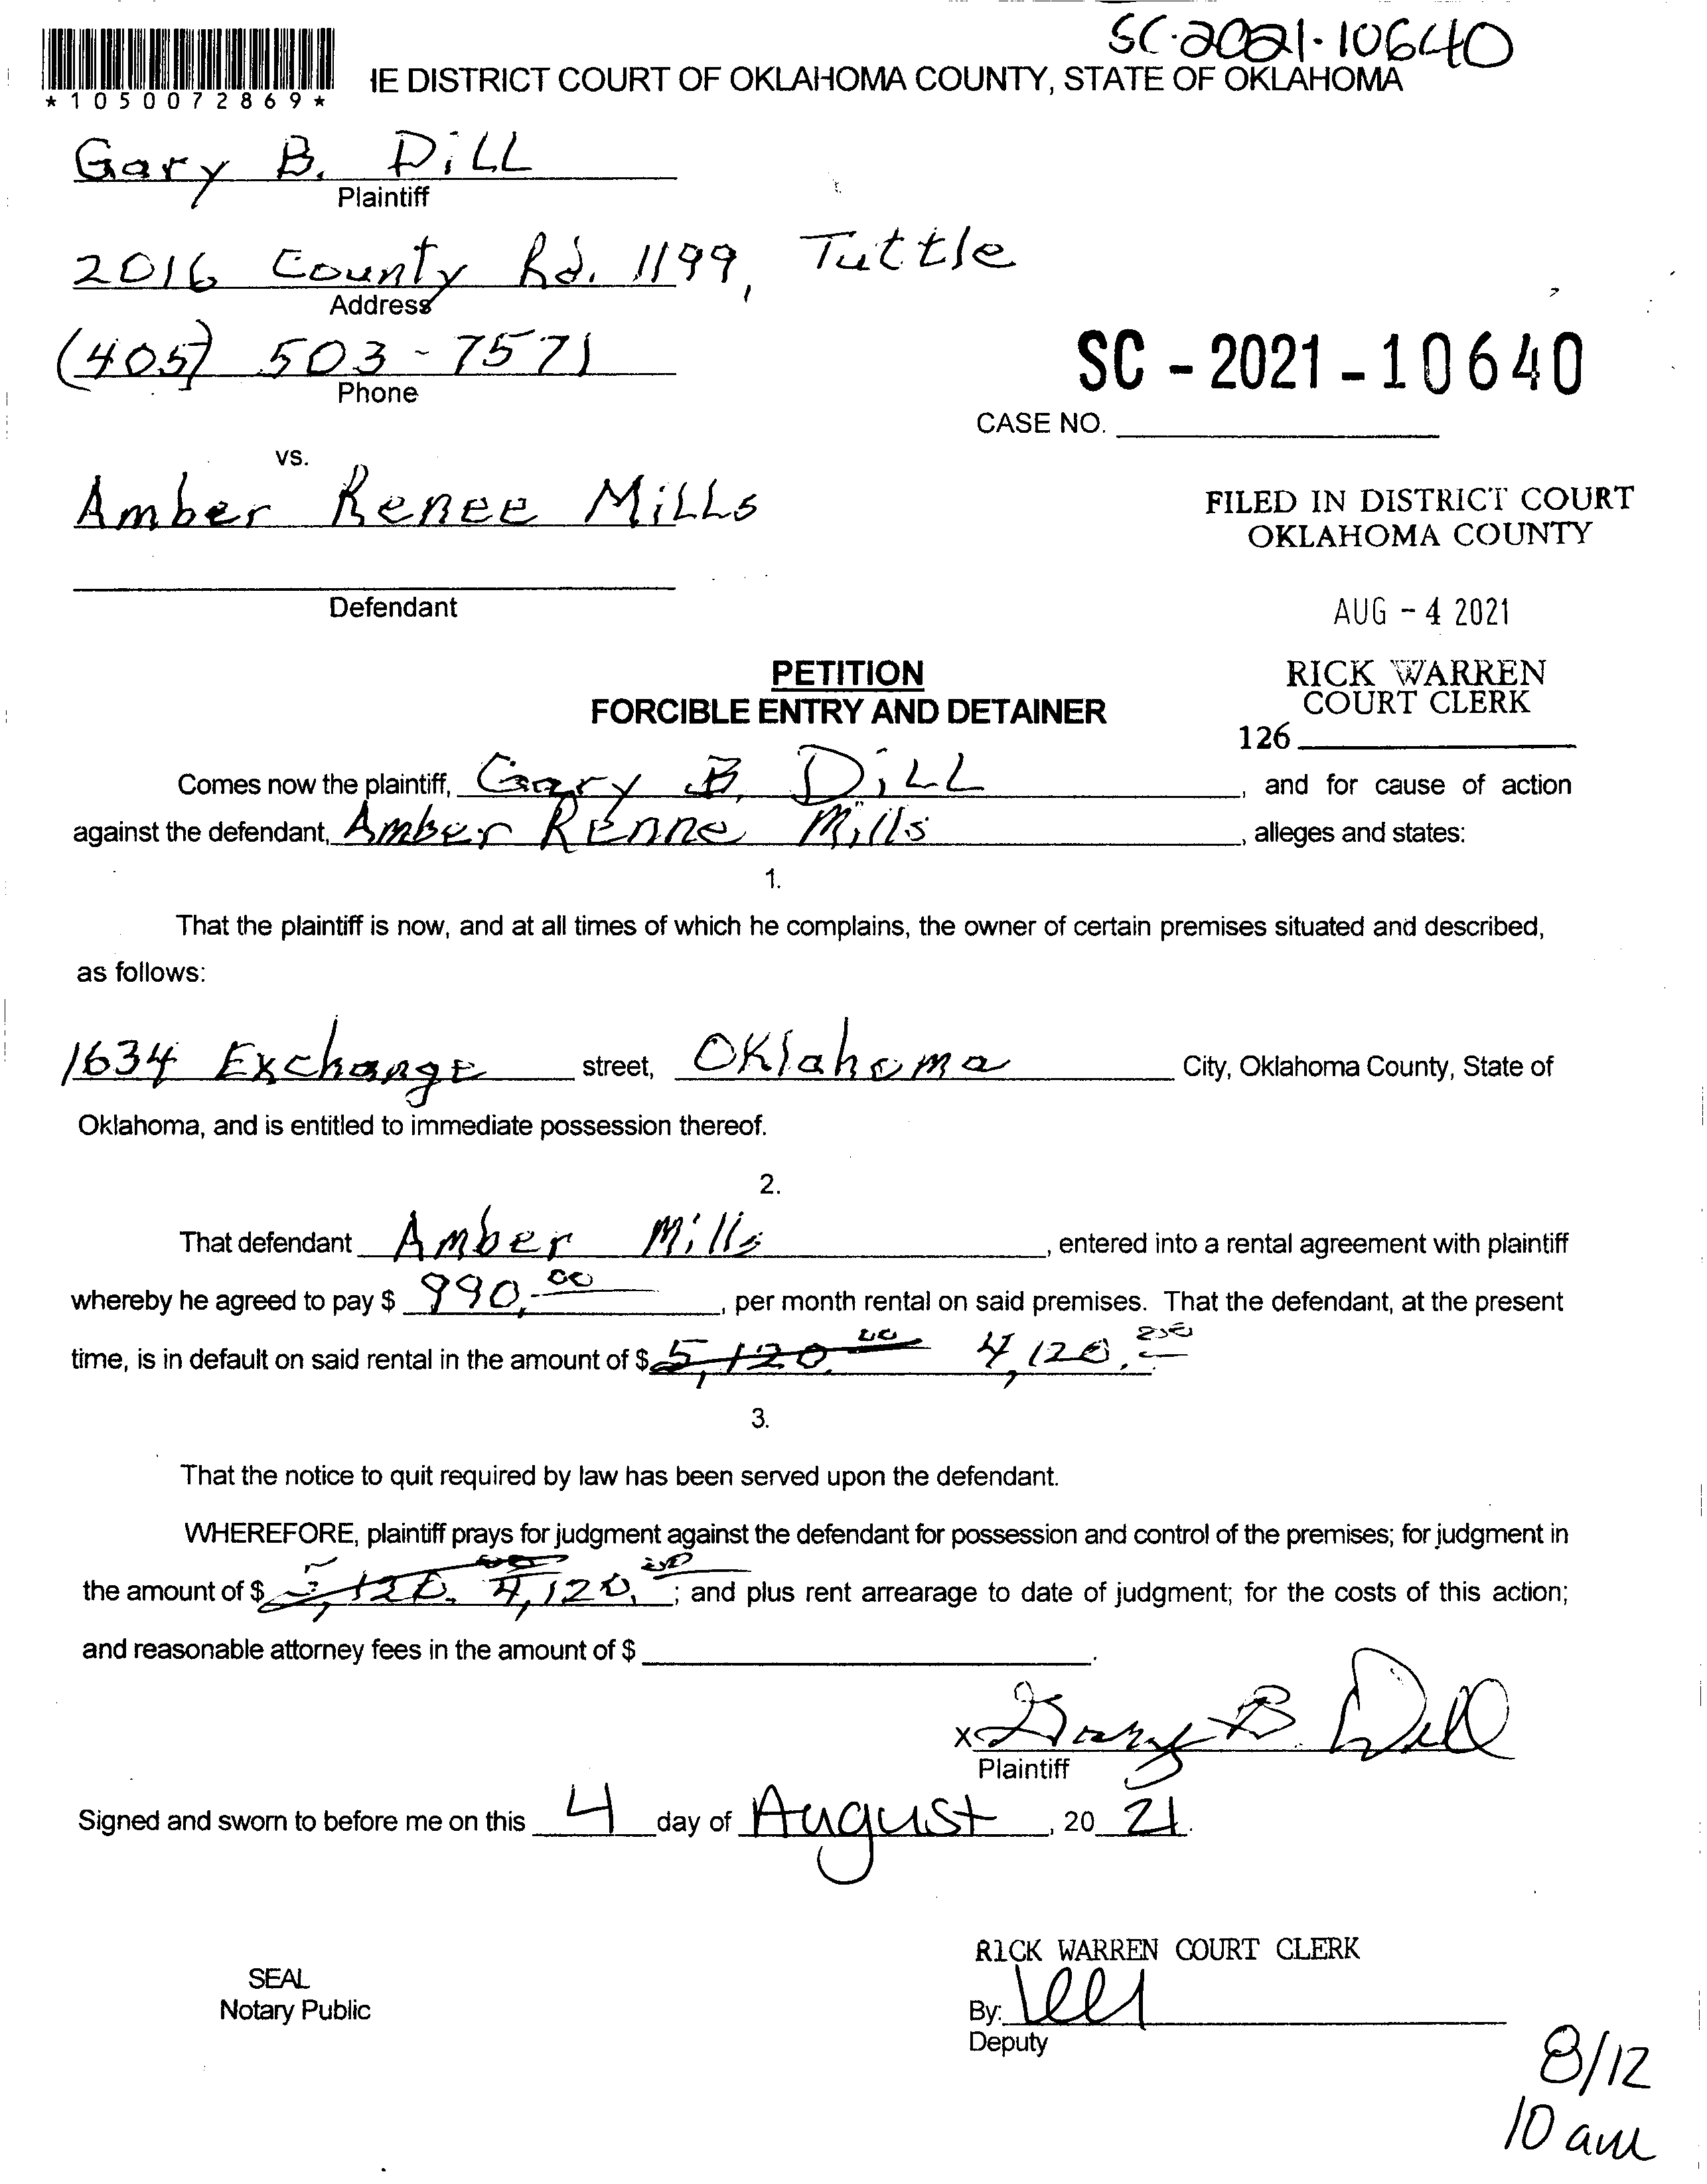 SC-2021-10640
*1050072869*
IE DISTRICT COURT OF OKLAHOMA COUNTY, STATE OF OKLAHOMA
Gary B. DiLL
Plaintiff
2016 County Rd. 1199, Tuttle
Address
(405) 503-7571
Phone
SC-2021-10640
CASE NO.
vs.
Amber Renee MiLLs
FILED IN DISTRICT COURT
OKLAHOMA COUNTY
Defendant
AUG - 4 2021
PETITION
FORCIBLE ENTRY AND DETAINER
RICK WARREN
COURT CLERK
126
Comes now the plaintiff, Gary B. DiLL, and for cause of action
against the defendant, Amber Renne Mills, alleges and states:
1.
That the plaintiff is now, and at all times of which he complains, the owner of certain premises situated and described,
as follows:
1634 Exchange street, Oklahoma City, Oklahoma County, State of
Oklahoma, and is entitled to immediate possession thereof.
2.
That defendant Amber Mills, entered into a rental agreement with plaintiff
whereby he agreed to pay $ 990.00, per month rental on said premises. That the defendant, at the present
time, is in default on said rental in the amount of $ 5,120.00 4,120.00
3.
That the notice to quit required by law has been served upon the defendant.
WHEREFORE, plaintiff prays for judgment against the defendant for possession and control of the premises; for judgment in
the amount of $ 5,120.00 4,120.00; and plus rent arrearage to date of judgment; for the costs of this action;
and reasonable attorney fees in the amount of $ .
x Gary B. Dill
Plaintiff
Signed and sworn to before me on this 4 day of August, 20 21.
RICK WARREN COURT CLERK
SEAL
Notary Public
By:
Deputy
8/12
10 am